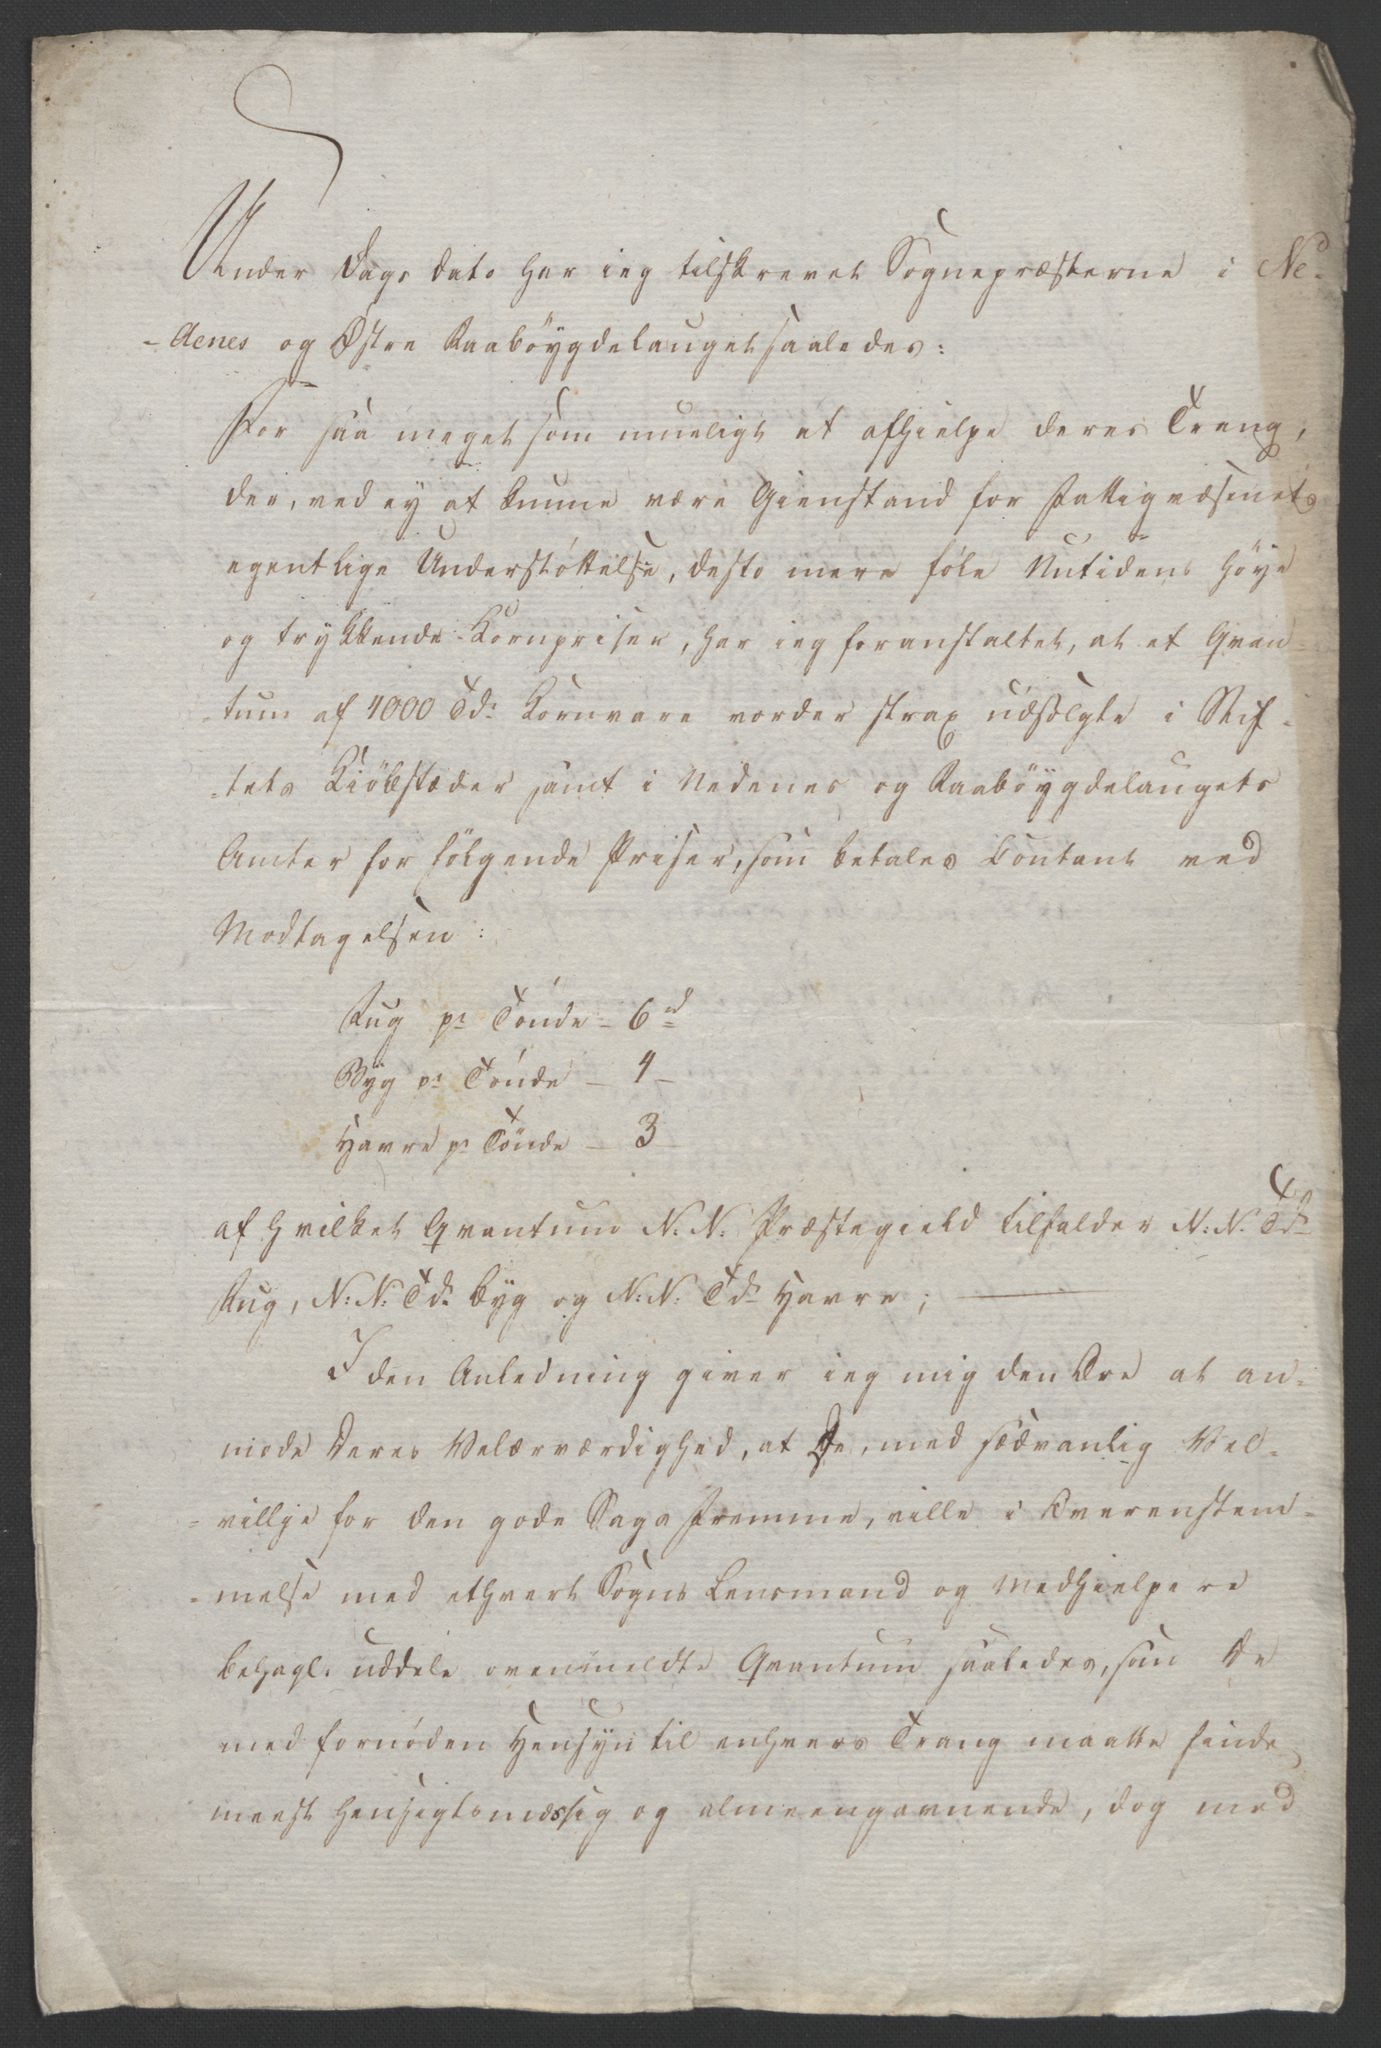 Under Dags dato har ieg tilskrevet Sognepræsterne i Ne-
-denes og Østre Raabøygdelauget saaledes:
For saa meget som mueligt at afhielpe deres Trang,
der, ved ey at kunne være Gienstand for Fattigvæsenets
egentlige Understøttelse, desto mere føle Nutidens høye
og trykkende Kornpriser, har ieg foranstaltet, at et Qvan-
-tum af 4000 Tdr Kornvare vorder strax udsolgte i Stif-
-tets Kiøbstæder samt i Nedenes og Raabøygdelaugets
Amter for følgende Priser, som betales Contant ved
Modtagelsen:
Rug pr Tønde - 6 rd
Byg pr Tønde - 4 -
Havre pr Tønde - 3 -
af hvilket Qvantum N. N. Præstegield tilfalder N: N. Tdr
Rug, N: N: Tdr Byg og N: N. Tdr Havre;
I den Anledning giver ieg mig den Ære at an-
mode Deres Velærværdighed, at De, med sædvanlig Vel-
-villje for den gode Sags Fremme, ville i Overenstem-
-melse med ethvert Sogns Lensmand og Medhielpere
behagl. uddele ovenmeldte Qvantum saaledes, som De
med fornøden Hensyn til enhvers Trang maatte finde
meest hensigtsmæssig og almeengavnende, dog med